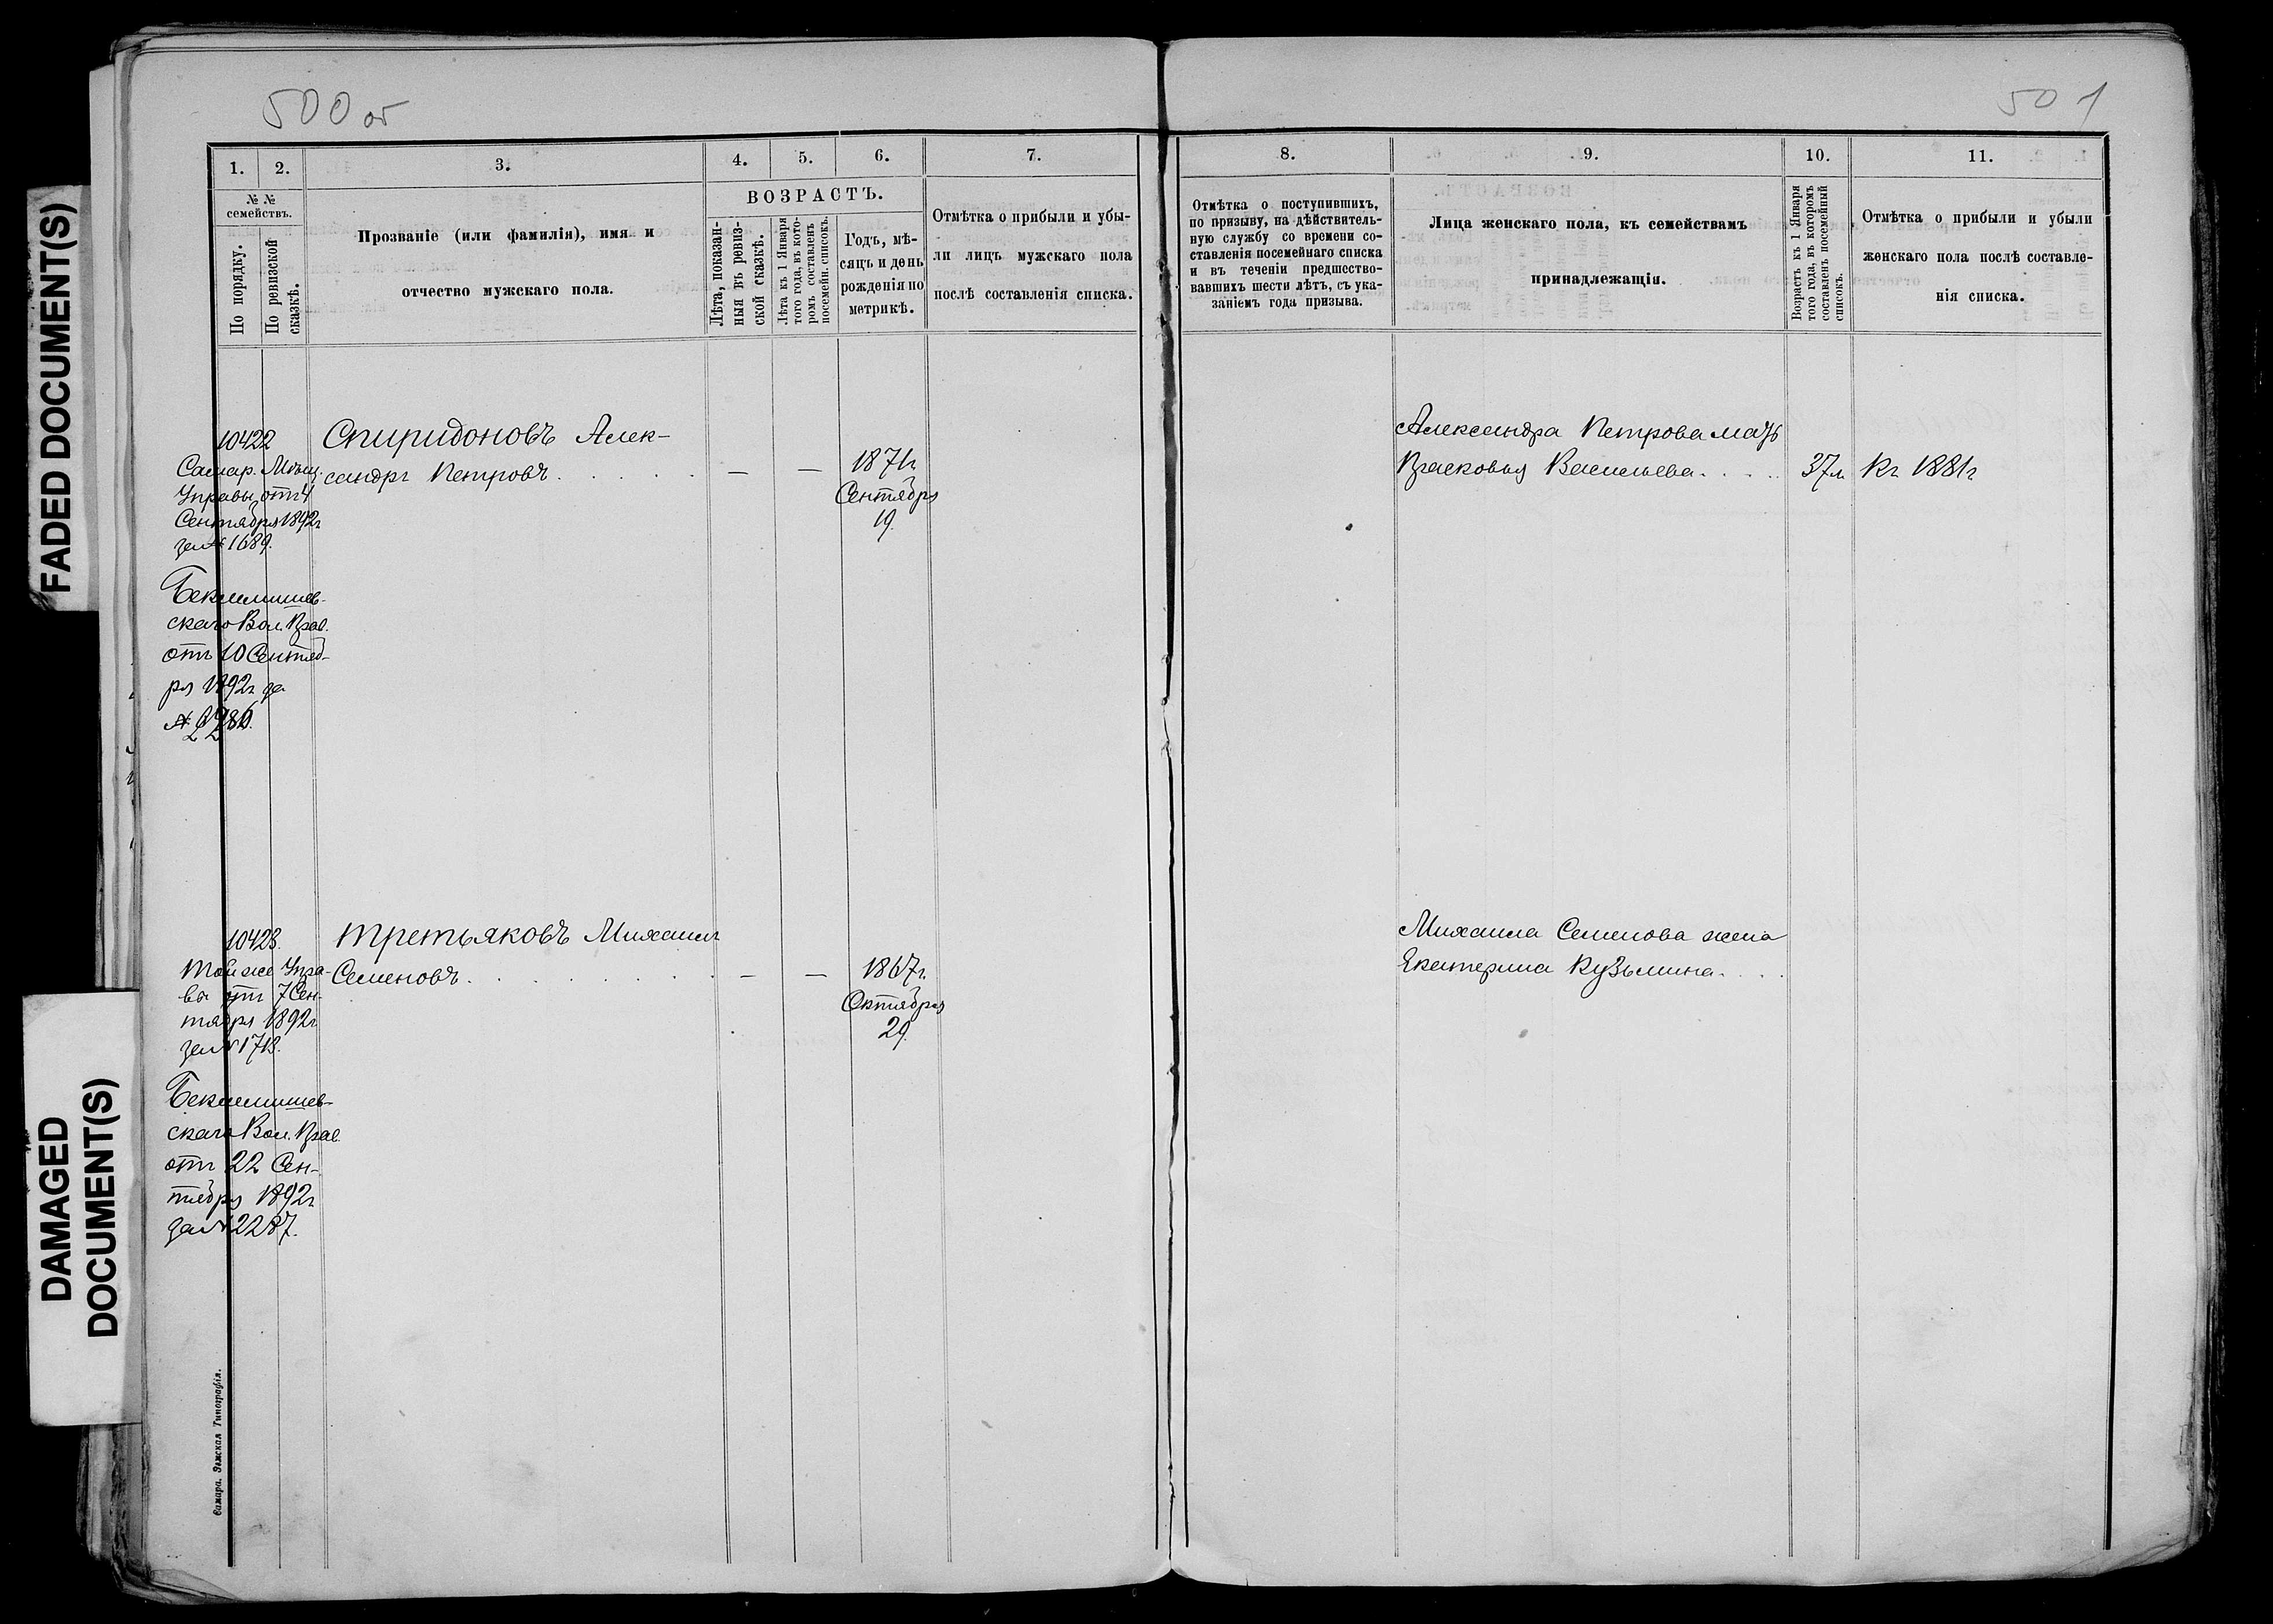 FADED DOCUMENT(S)
DAMAGED
DOCUMENT(S)
500 об
1. 2. 3. 4. 5. 6. 7.
№ №
семействъ.
По порядку.
По ревизской
сказкѣ.
Прозваніе (или фамилія), имя и
отчество мужскаго пола.
ВОЗРАСТЪ.
Лѣта, показан-
ныя въ ревиз-
ской сказкѣ.
Лѣта къ 1 Января
того года, въ кото-
ромъ составленъ
посемейн. списокъ.
Годъ, мѣ-
сяцъ и день
рожденія по
метрикѣ.
Отмѣтка о прибыли и убы-
ли лицъ мужскаго пола
послѣ составленія списка.
10422
Самар. Мѣщ.
Управы отъ 4
Сентября 1892г
за № 1689.
Бекмемишев-
скаго Вол. Прав.
отъ 10 Сентяб-
ря 1892г за
Спиридоновъ Алек-
сандръ Петровъ . . . . . — — 1871г
Сентября
19.
10423.
Той же Упра-
вы отъ 7 Сен-
тября 1892г
за № 1713.
Бекмемишев-
скаго Вол. Прав.
отъ 22 Сен-
тября 1892г
за № 2287.
Третьяковъ Михаилъ
Семеновъ . . . . . . . — — 1867г.
Октября
29.
Самара. Земская Типографія.
501
8. 9. 10. 11.
Отмѣтка о поступившихъ,
по призыву, на дѣйствитель-
ную службу со времени со-
ставленія посемейнаго списка
и въ теченіи предшество-
вавшихъ шести лѣтъ, съ ука-
заніемъ года призыва.
Лица женскаго пола, къ семействамъ
принадлежащія.
Возрастъ къ 1 Января
того года, въ которомъ
составленъ посемейный
списокъ.
Отмѣтка о прибыли и убыли
женскаго пола послѣ составле-
нія списка.
Александра Петрова мать
Прасковья Васильева . . . . 37л. Къ 1881г
Михаила Семенова жена
Екатерина Кузьмина . . . .